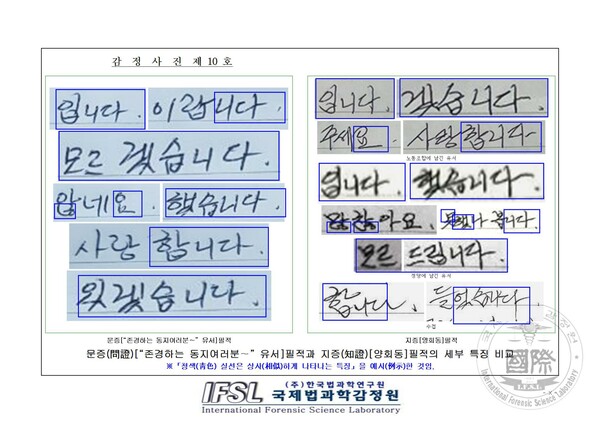 감 정 사 진 제 10 호
입니다. 이랍니다.
모르겠습니다.
않네요. 했습니다.
사랑 합니다.
있겠습니다.
문증["존경하는 동지여러분~" 유서]필적
입니다. 겠습니다.
주세요. 사랑합니다
노동조합에 남긴 유서
입니다. 했습니다.
않아요.
모르 드립니다.
정당에 남긴 유서
합니다. 들었습니다.
수첩
지증[양회동]필적
문증(問證)["존경하는 동지여러분~" 유서]필적과 지증(知證)[양회동]필적의 세부 특징 비교
※「청색(靑色) 실선은 상사(相似)하게 나타나는 특징」을 예시(例示)한 것임.
IFSL (주)한국법과학연구원
국제법과학감정원
International Forensic Science Laboratory
國際
International Forensic Science Laboratory